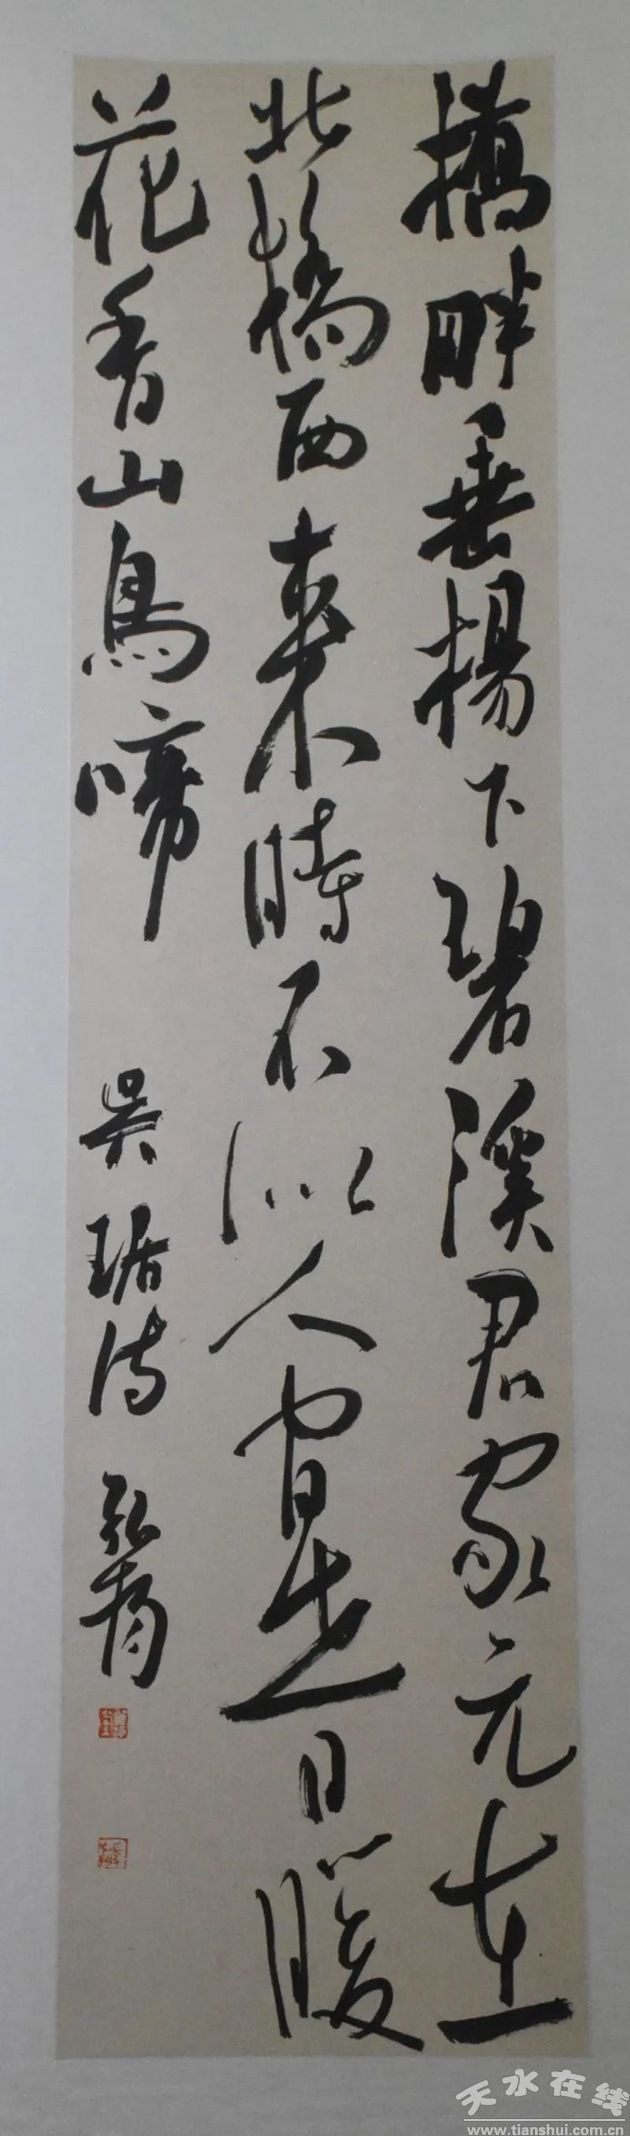 橋畔垂楊下碧溪君家元在
北橋西来時不似人間世日暖
花香山鳥啼
吴琚诗
弘揚
天水在线
www.tianshui.com.cn